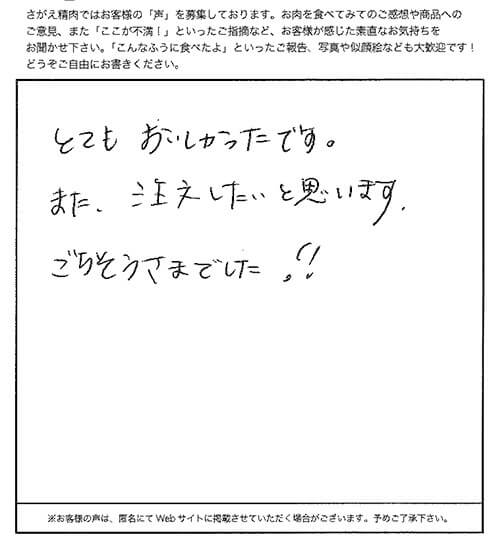 さがえ精肉ではお客様の「声」を募集しております。お肉を食べてみてのご感想や商品への
ご意見、また「ここが不満！」といったご指摘など、お客様が感じた素直なお気持ちを
お聞かせ下さい。「こんなふうに食べたよ」といったご報告、写真や似顔絵なども大歓迎です！
どうぞご自由にお書きください。
とても おいしかったです。
また、注文したいと思います。
ごちそうさまでした！！
※お客様の声は、匿名にてWebサイトに掲載させていただく場合がございます。予めご了承下さい。